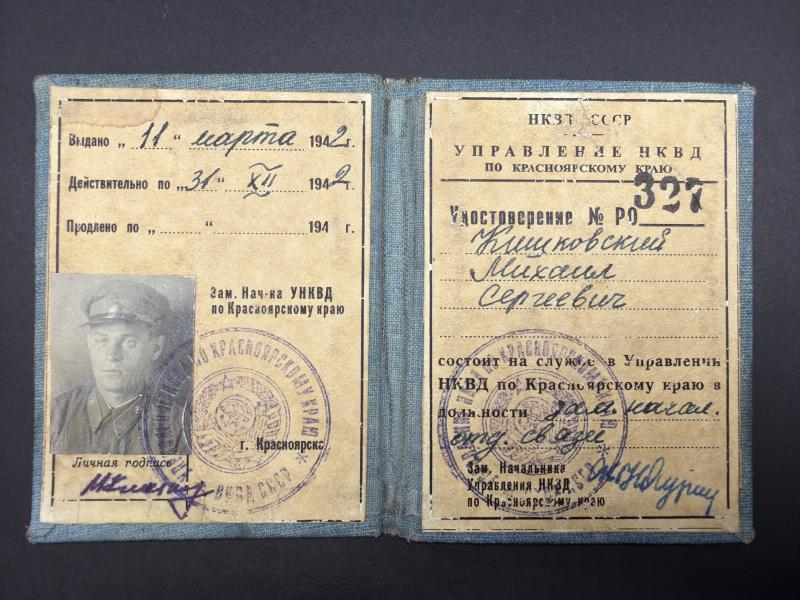 Выдано „ 11 “ марта 1942 г.
Действительно по „ 31 “ XII 1942 г.
Продлено по „ “ 194 г.
Зам. Нач-ка УНКВД
по Красноярскому краю
г. Красноярск
Личная подпись
НКВД СССР
УПРАВЛЕНИЕ НКВД
ПО КРАСНОЯРСКОМУ КРАЮ
Удостоверение № РО 327
Кишковский
Михаил
Сергеевич
состоит на службе в Управлении
НКВД по Красноярскому краю в
должности зам. начал.
отд. связи
Зам. Начальника
Управления НКВД
по Красноярскому краю